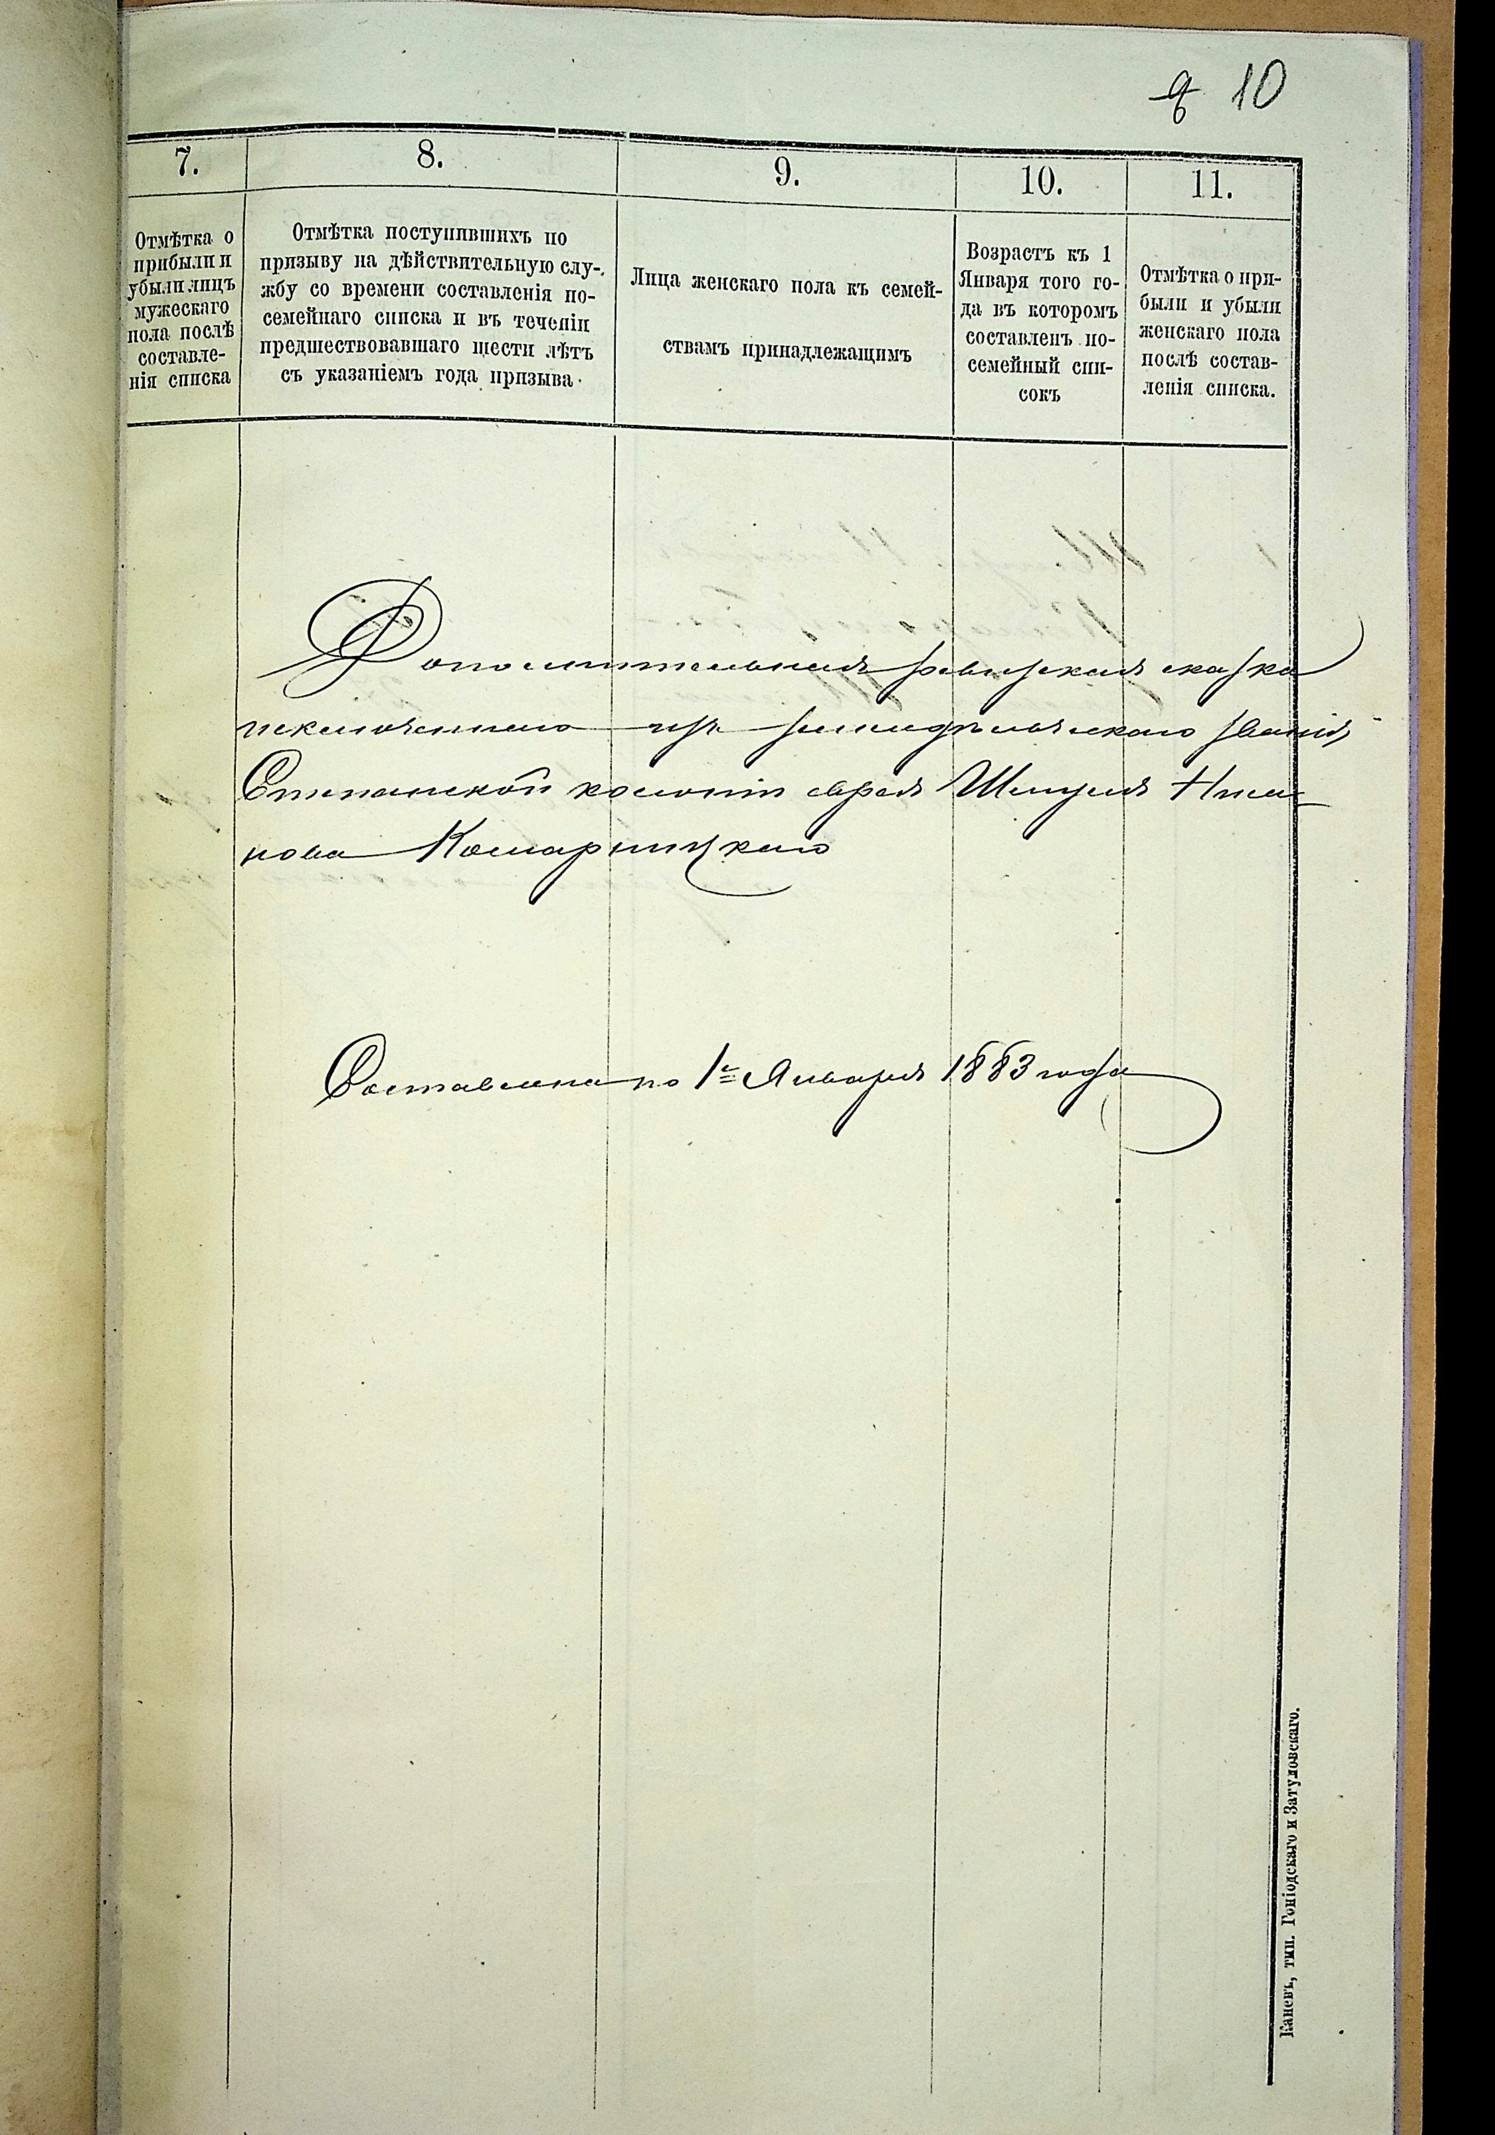 10
7.
8.
9.
10.
11.
Отмѣтка о
прибыли и
убыли лицъ
мужескаго
пола послѣ
составле-
нія списка
Отмѣтка поступившихъ по
призыву на дѣйствительную слу-
жбу со времени составленія по-
семейнаго списка и въ теченіи
предшествовавшаго шести лѣтъ
съ указаніемъ года призыва.
Лица женскаго пола къ семей-
ствамъ принадлежащимъ
Возрастъ къ 1
Января того го-
да въ которомъ
составленъ по-
семейный спи-
сокъ
Отмѣтка о при-
были и убыли
женскаго пола
послѣ состав-
ленія списка.
Дополнительная ревизская сказка
исключеннаго изъ земледѣльческаго званія
колоніи еврея Шмуля Ниса-
нова Комарницкаго
Составлена по 1е Января 1883 года
Каневъ, тип. Гоніодскаго и Затуловскаго.